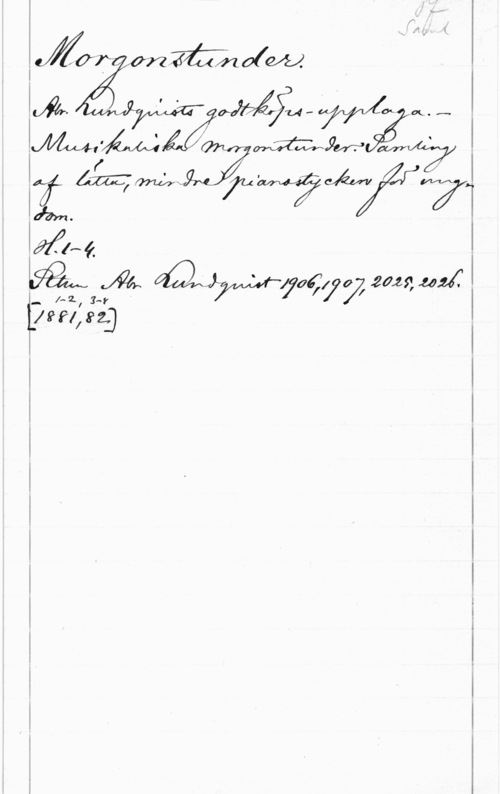 Pf
Saml
Morgonstunder.
Abr. Lundquists godtköps-upplaga. -
Musikaliska morgonstunder: Samling
af lätta, mindre pianostycken för ung-
dom.
H. 1-4.
Sthm Abr Lundquist 1906, 1907, 2025, 2026.
1-2, 3-4
[1881, 82]